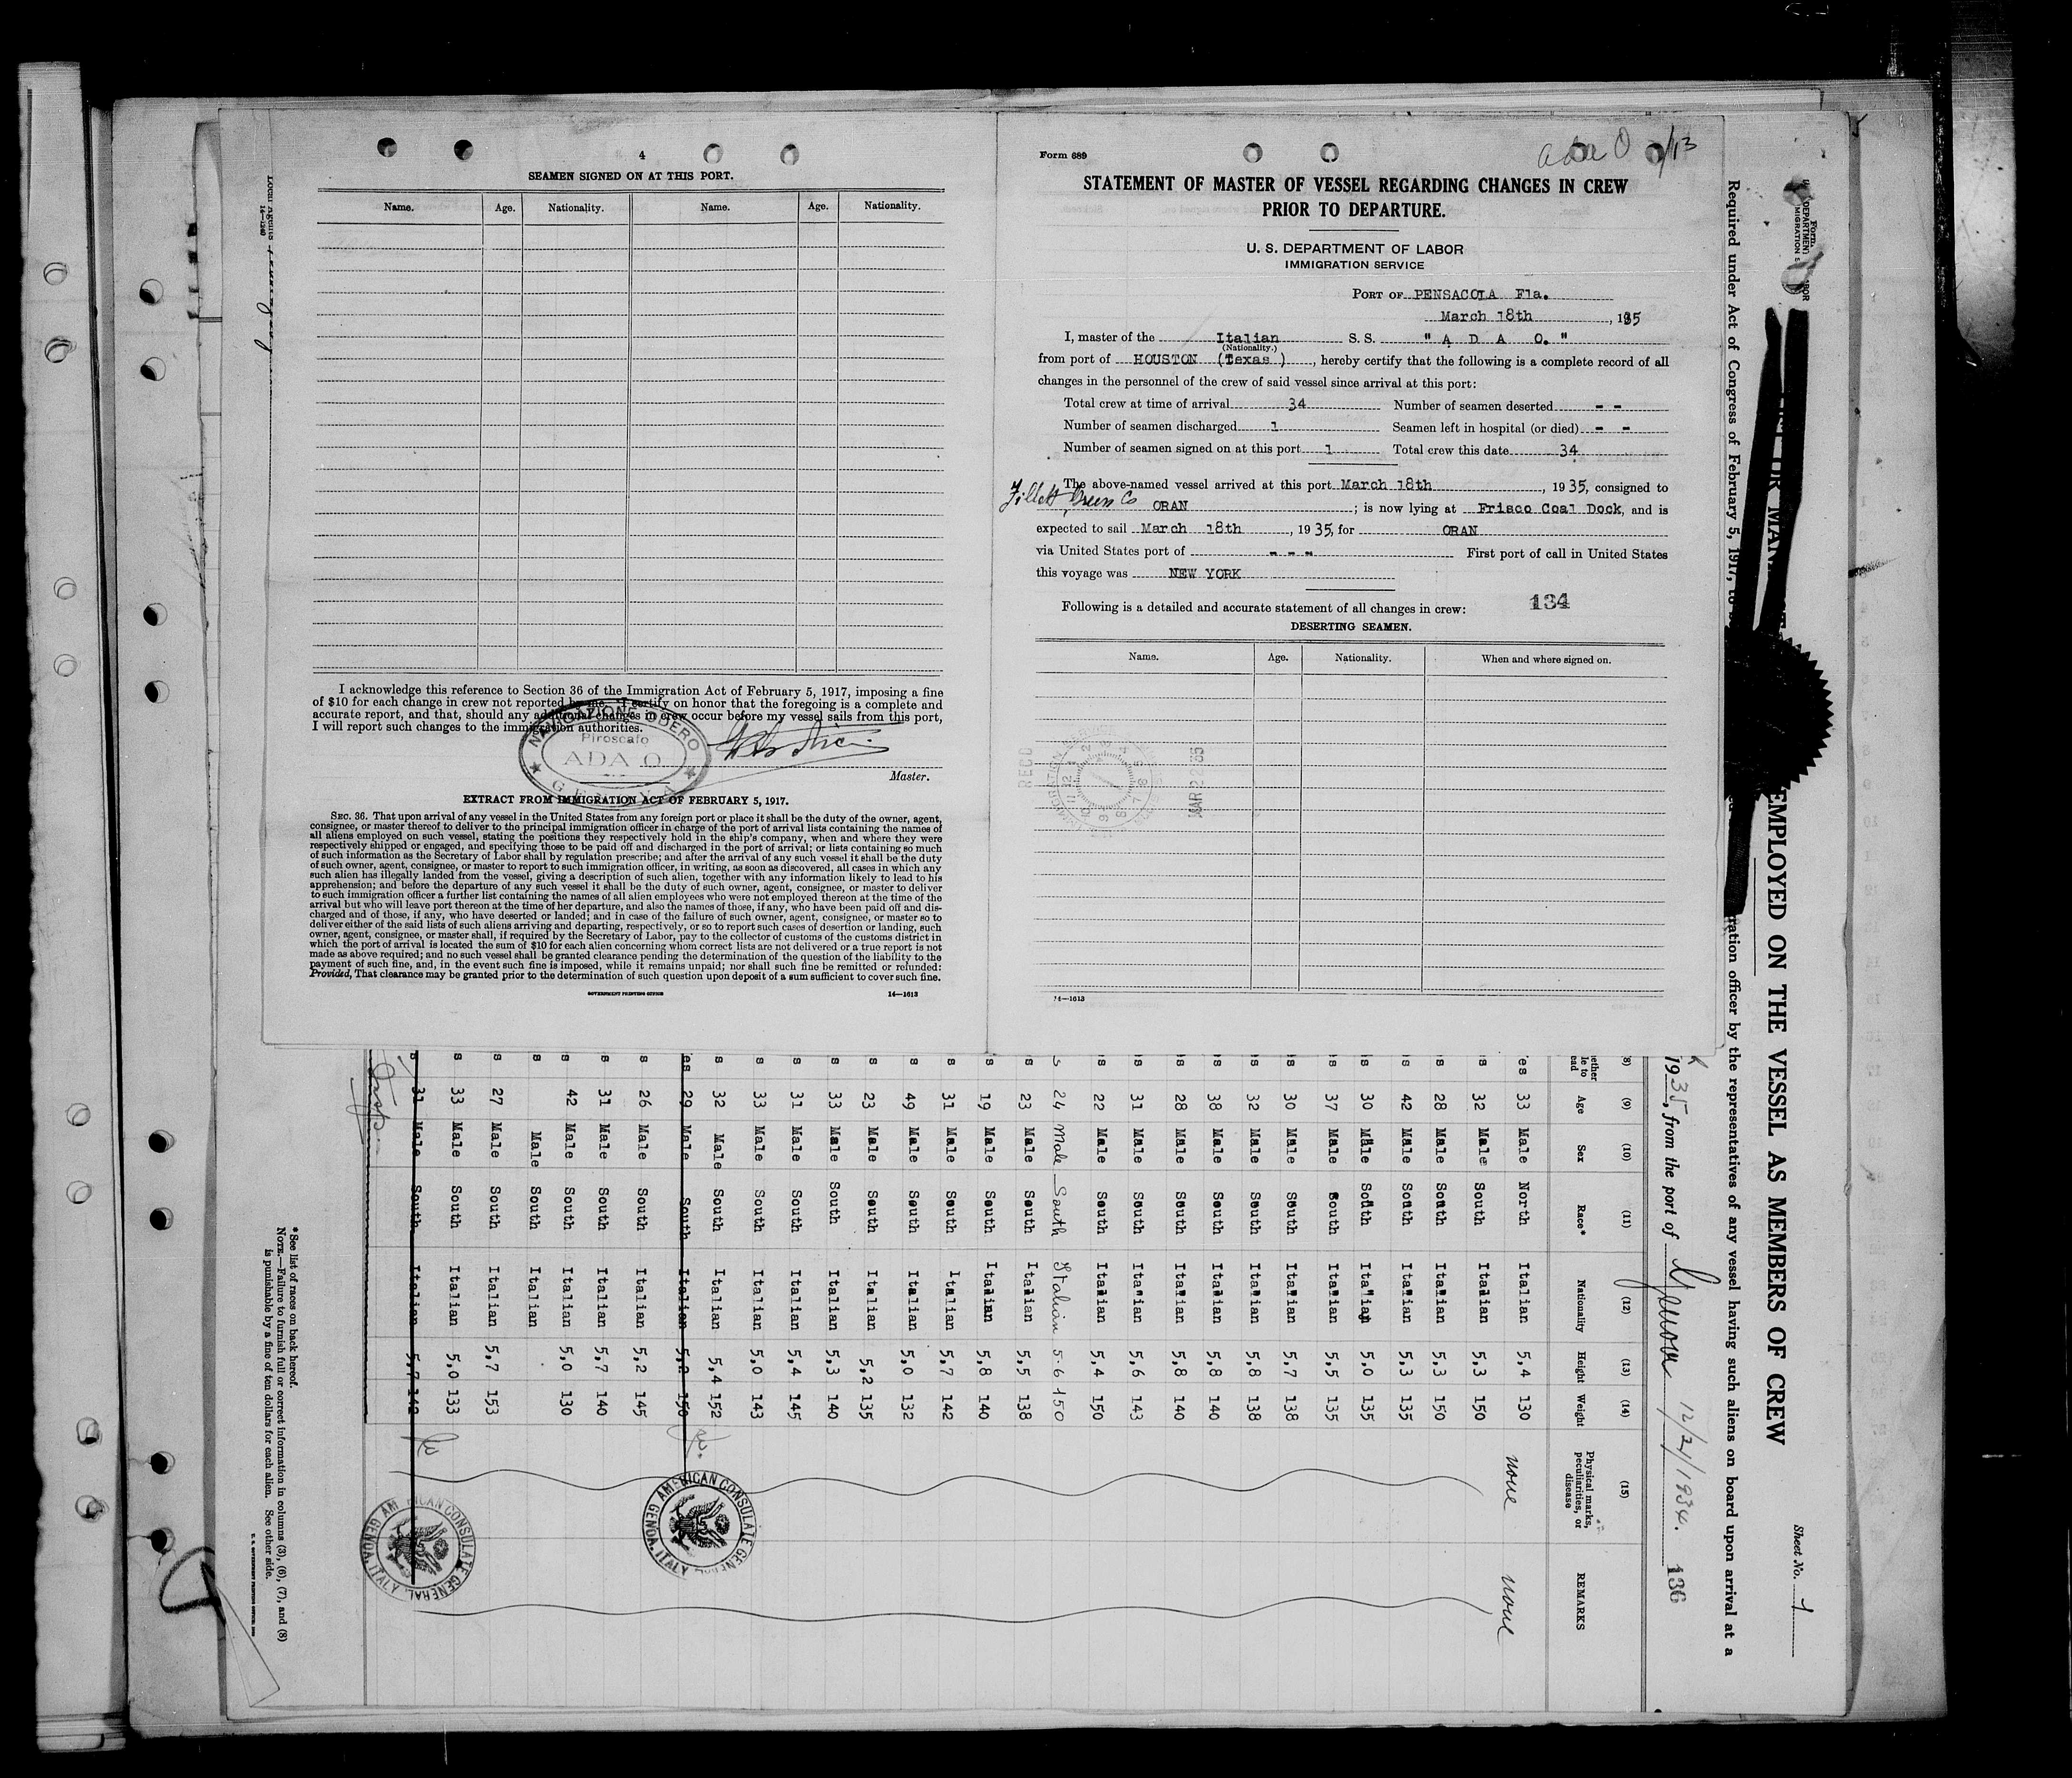 4
SEAMEN SIGNED ON AT THIS PORT.
Name. Age. Nationality. Name. Age. Nationality.
I acknowledge this reference to Section 36 of the Immigration Act of February 5, 1917, imposing a fine
of $10 for each change in crew not reported by me. I certify on honor that the foregoing is a complete and
accurate report, and that, should any additional changes in crew occur before my vessel sails from this port,
I will report such changes to the immigration authorities.
NAVIGAZIONE ODERO
Piroscafo
ADA O
GENOVA
Master.
EXTRACT FROM IMMIGRATION ACT OF FEBRUARY 5, 1917.
SEC. 36. That upon arrival of any vessel in the United States from any foreign port or place it shall be the duty of the owner, agent,
consignee, or master thereof to deliver to the principal immigration officer in charge of the port of arrival lists containing the names of
all aliens employed on such vessel, stating the positions they respectively hold in the ship's company, when and where they were
respectively shipped or engaged, and specifying those to be paid off and discharged in the port of arrival; or lists containing so much
of such information as the Secretary of Labor shall by regulation prescribe; and after the arrival of any such vessel it shall be the duty
of such owner, agent, consignee, or master to report to such immigration officer, in writing, as soon as discovered, all cases in which any
such alien has illegally landed from the vessel, giving a description of such alien, together with any information likely to lead to his
apprehension; and before the departure of any such vessel it shall be the duty of such owner, agent, consignee, or master to deliver
to such immigration officer a further list containing the names of all alien employees who were not employed thereon at the time of the
arrival but who will leave port thereon at the time of her departure, and also the names of those, if any, who have been paid off and dis-
charged and of those, if any, who have deserted or landed; and in case of the failure of such owner, agent, consignee, or master so to
deliver either of the said lists of such aliens arriving and departing, respectively, or so to report such cases of desertion or landing, such
owner, agent, consignee, or master shall, if required by the Secretary of Labor, pay to the collector of customs of the customs district in
which the port of arrival is located the sum of $10 for each alien concerning whom correct lists are not delivered or a true report is not
made as above required; and no such vessel shall be granted clearance pending the determination of the question of the liability to the
payment of such fine, and, in the event such fine is imposed, while it remains unpaid; nor shall such fine be remitted or refunded:
Provided, That clearance may be granted prior to the determination of such question upon deposit of a sum sufficient to cover such fine.
GOVERNMENT PRINTING OFFICE 14—1613
Local Agents
14—1240
Form 689
Ada O
STATEMENT OF MASTER OF VESSEL REGARDING CHANGES IN CREW
PRIOR TO DEPARTURE.
U. S. DEPARTMENT OF LABOR
IMMIGRATION SERVICE
PORT OF PENSACOLA Fla.
March 18th, 1935
I, master of the Italian S. S. " A D A O. "
(Nationality.)
from port of HOUSTON (Texas ), hereby certify that the following is a complete record of all
changes in the personnel of the crew of said vessel since arrival at this port:
Total crew at time of arrival 34 Number of seamen deserted - -
Number of seamen discharged 1 Seamen left in hospital (or died) - -
Number of seamen signed on at this port 1 Total crew this date 34
The above-named vessel arrived at this port March 18th, 1935, consigned to
Fillett Green Co ORAN; is now lying at Frisco Coal Dock, and is
expected to sail March 18th, 1935, for ORAN
via United States port of - - - First port of call in United States
this voyage was NEW YORK
Following is a detailed and accurate statement of all changes in crew: 134
DESERTING SEAMEN.
Name. Age. Nationality. When and where signed on.
RECD
MAR 22 35
14—1613
Sheet No. 1
EMPLOYED ON THE VESSEL AS MEMBERS OF CREW
Required under Act of Congress of February 5, 1917, to
ration officer by the representatives of any vessel having such aliens on board upon arrival at a
1935, from the port of Genova 12/21/1934. 136
(8) (9) (10) (11) (12) (13) (14) (15)
Age Sex Race* Nationality Height Weight Physical marks, peculiarities, or disease REMARKS
es 33 Male North Italian 5,4 130 none none
s 32 Male South Italian 5,3 150
s 28 Male South Italian 5,3 150
s 42 Male South Italian 5,3 135
s 30 Male South Italian 5,0 135
s 37 Male South Italian 5,5 135
s 30 Male South Italian 5,7 138
s 32 Male South Italian 5,8 138
s 38 Male South Italian 5,8 140
s 28 Male South Italian 5,8 140
s 31 Male South Italian 5,6 143
s 22 Male South Italian 5,4 150
s 24 Male South Italian 5.6 150
s 23 Male South Italian 5,5 138
s 19 Male South Italian 5,8 140
s 31 Male South Italian 5,7 142
s 49 Male South Italian 5,0 132
s 23 Male South Italian 5,2 135
s 33 Male South Italian 5,3 140
s 31 Male South Italian 5,4 145
s 33 Male South Italian 5,0 143
s 32 Male South Italian 5,4 152
es 29 Male South Italian 5,2 150
s 26 Male South Italian 5,2 145
s 31 Male South Italian 5,7 140
s 42 Male South Italian 5,0 130
s Male South Italian
s 27 Male South Italian 5,7 153
s 33 Male South Italian 5,0 133
s 31 Male South Italian 5,7 142
AMERICAN CONSULATE GENERAL
GENOA, ITALY
AMERICAN CONSULATE GENERAL
GENOA, ITALY
* See list of races on back hereof.
NOTE.—Failure to furnish full or correct information in columns (3), (6), (7), and (8)
is punishable by a fine of ten dollars for each alien. See other side.